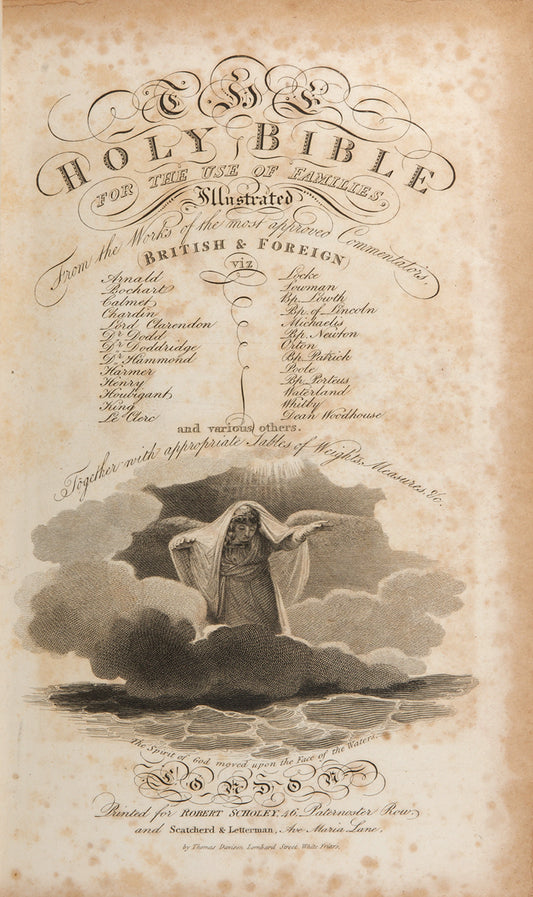 THE
HOLY BIBLE
FOR THE USE OF FAMILIES,
Illustrated
From the Works of the most approved Commentators,
BRITISH & FOREIGN
viz
Arnald
Bochart
Calmet
Chardin
Lord Clarendon
Dr Dodd
Dr Doddridge
Dr Hammond
Harmer
Henry
Houbigant
King
Le Clerc
Locke
Lowman
Bp. Lowth
Bp. of Lincoln
Michaelis
Bp. Newton
Orton
Bp. Patrick
Poole
Bp. Porteus
Waterland
Whitby
Dean Woodhouse
and various others.
Together with appropriate Tables of Weights, Measures, &c.
The Spirit of God moved upon the Face of the Waters.
LONDON
Printed for ROBERT SCHOLEY, 46, Paternoster Row,
and Scatcherd & Letterman, Ave Maria Lane,
by Thomas Davison Lombard Street, White Friars.